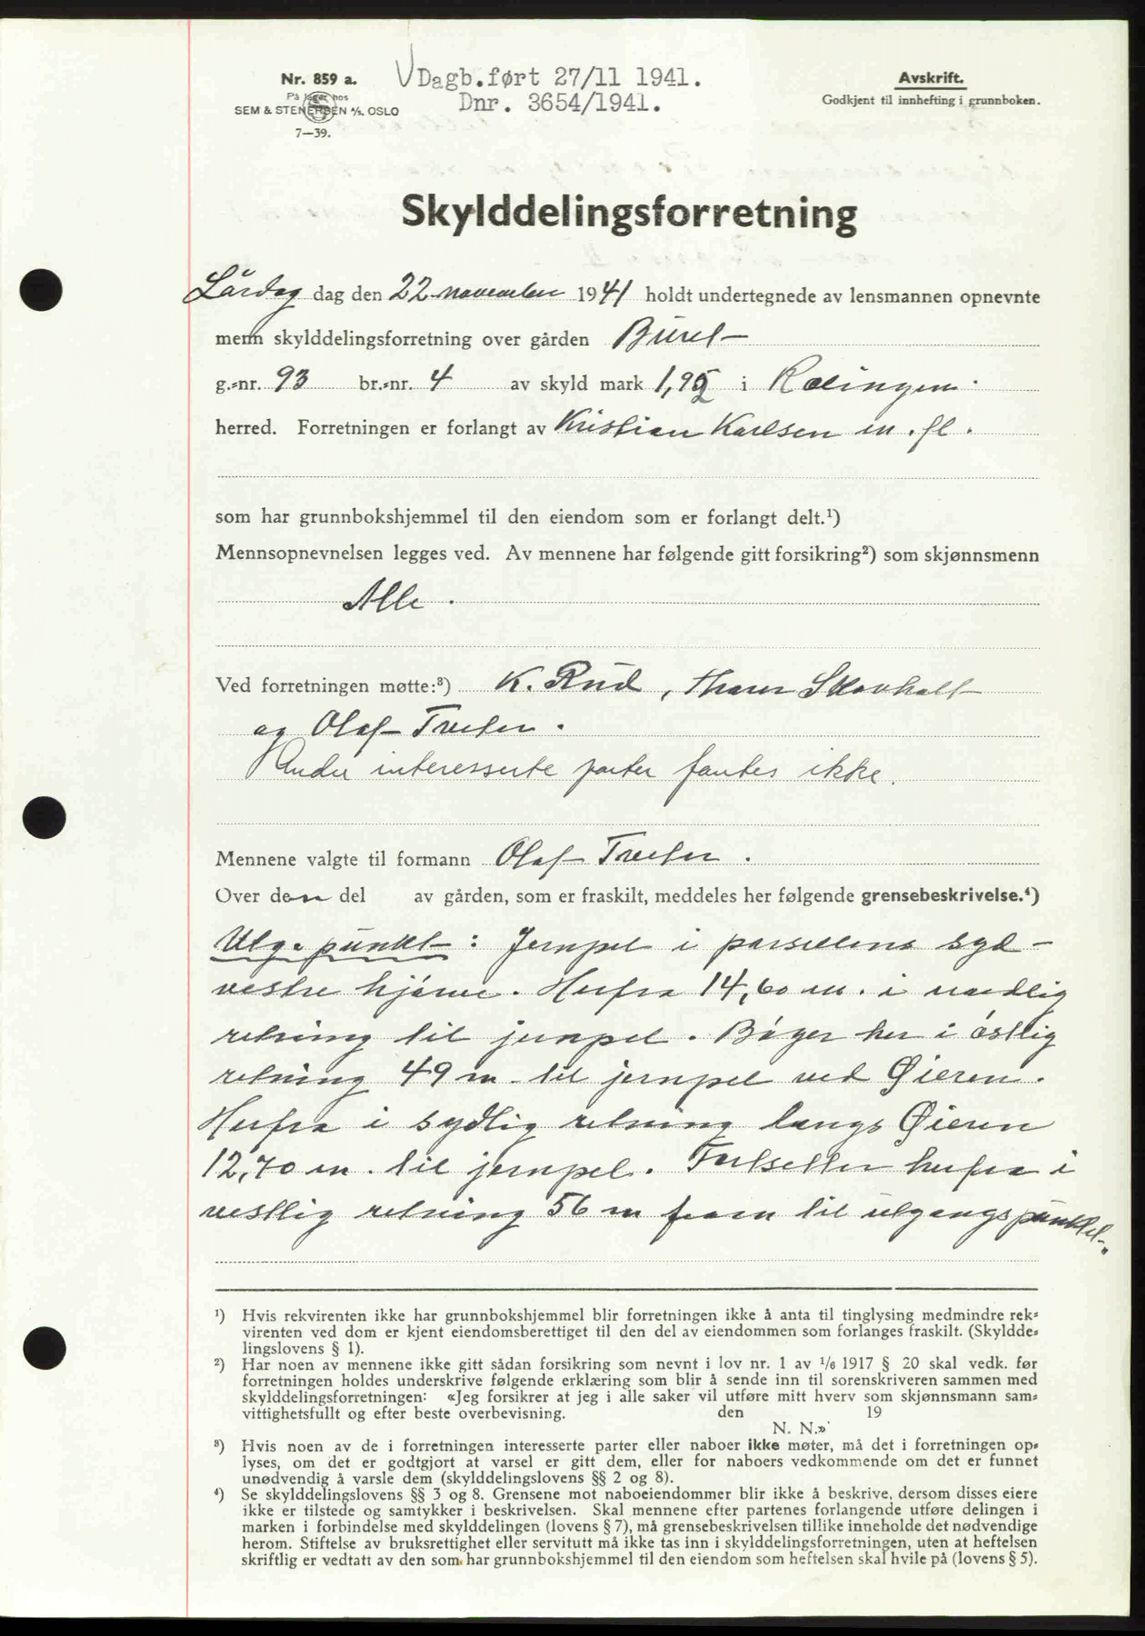 Nr. 859 a.
På lager hos
SEM & STENERSEN A/S. OSLO
7—39.
Dagb.ført 27/11 1941.
Dnr. 3654/1941.
Avskrift.
Godkjent til innhefting i grunnboken.
Skylddelingsforretning
Lördag dag den 22 november 1941 holdt undertegnede av lensmannen opnevnte
menn skylddelingsforretning over gården Burel
g.=nr. 93 br.=nr. 4 av skyld mark 1,95 i Rælingen
herred. Forretningen er forlangt av Kristian Karlsen m. fl.
som har grunnbokshjemmel til den eiendom som er forlangt delt.¹)
Mennsopnevnelsen legges ved. Av mennene har følgende gitt forsikring²) som skjønnsmenn
Alle.
Ved forretningen møtte:³) K. Rud, Skovholt
og Olaf Tveter.
Andre interesserte parter fantes ikke.
Mennene valgte til formann Olaf Tveter.
Over den del av gården, som er fraskilt, meddeles her følgende grensebeskrivelse.⁴)
Utg. punkt: Jernpel i parsellens syd-
vestre hjørne. Herfra 14,60 m. i nordlig
retning til jernpel. Bøyer her i østlig
retning 49 m. til jernpel ved Øieren.
Herfra i sydlig retning langs Øieren
12,70 m. til jernpel. Fortsetter herfra i
vestlig retning 56 m fram til utgangspunktet.
¹) Hvis rekvirenten ikke har grunnbokshjemmel blir forretningen ikke å anta til tinglysing medmindre rek=
virenten ved dom er kjent eiendomsberettiget til den del av eiendommen som forlanges fraskilt. (Skyldde=
lingslovens § 1).
²) Har noen av mennene ikke gitt sådan forsikring som nevnt i lov nr. 1 av ¹/₆ 1917 § 20 skal vedk. før
forretningen holdes underskrive følgende erklæring som blir å sende inn til sorenskriveren sammen med
skylddelingsforretningen: «Jeg forsikrer at jeg i alle saker vil utføre mitt hverv som skjønnsmann sam=
vittighetsfullt og efter beste overbevisning. den 19
N. N.»
³) Hvis noen av de i forretningen interesserte parter eller naboer ikke møter, må det i forretningen op=
lyses, om det er godtgjort at varsel er gitt dem, eller for naboers vedkommende om det er funnet
unødvendig å varsle dem (skylddelingslovens §§ 2 og 8).
⁴) Se skylddelingslovens §§ 3 og 8. Grensene mot naboeiendommer blir ikke å beskrive, dersom disses eiere
ikke er tilstede og samtykker i beskrivelsen. Skal mennene efter partenes forlangende utføre delingen i
marken i forbindelse med skylddelingen (lovens § 7), må grensebeskrivelsen tillike inneholde det nødvendige
herom. Stiftelse av bruksrettighet eller servitutt må ikke tas inn i skylddelingsforretningen, uten at heftelsen
skriftlig er vedtatt av den som har grunnbokshjemmel til den eiendom som heftelsen skal hvile på (lovens § 5).